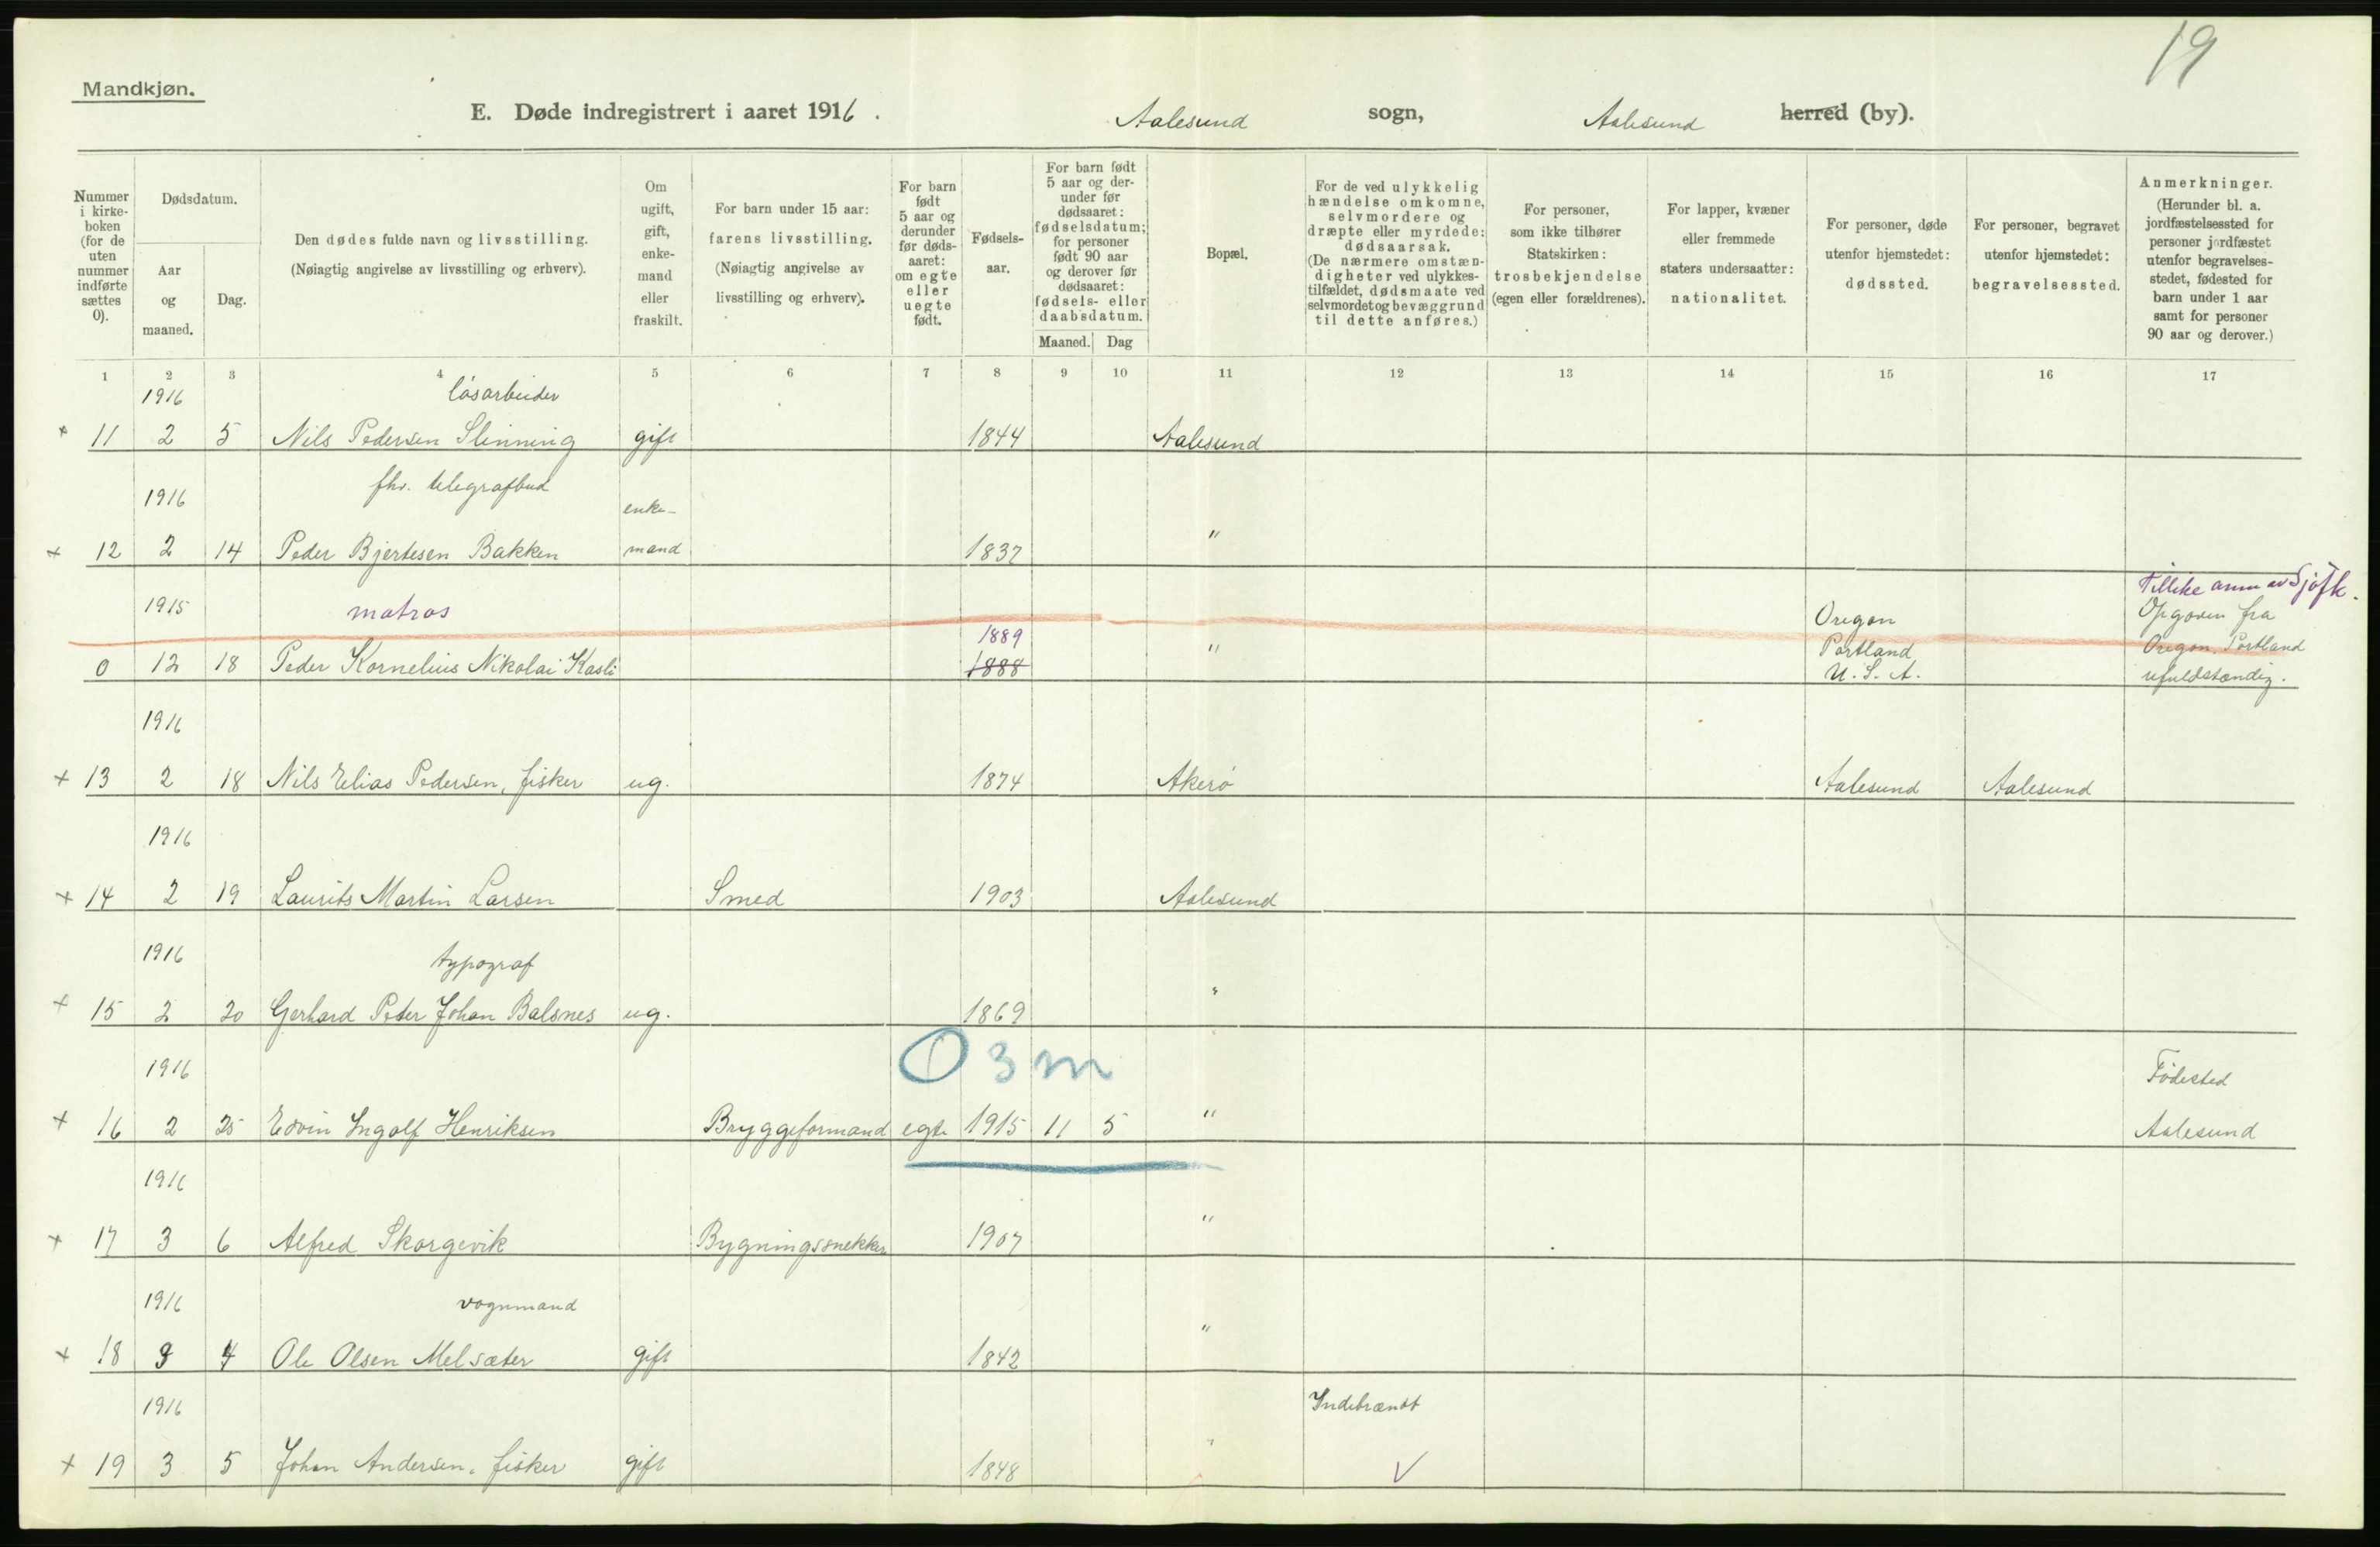 19
Mandkjøn.
E. Døde indregistrert i aaret 1916. Aalesund sogn, Aalesund herred (by).
Nummer i kirkeboken (for de uten nummer indførte sættes 0).
Dødsdatum.
Aar og maaned.
Dag.
Den dødes fulde navn og livsstilling.
(Nøiagtig angivelse av livsstilling og erhverv).
Om ugift, gift, enkemand eller fraskilt.
For barn under 15 aar: farens livsstilling.
(Nøiagtig angivelse av livsstilling og erhverv).
For barn født 5 aar og derunder før dødsaaret: om egte eller uegte født.
Fødselsaar.
For barn født 5 aar og derunder før dødsaaret: fødselsdatum; for personer født 90 aar og derover før dødsaaret: fødsels- eller daabsdatum.
Maaned. Dag
Bopæl.
For de ved ulykkelig hændelse omkomne, selvmordere og dræpte eller myrdede: dødsaarsak.
(De nærmere omstændigheter ved ulykkestilfældet, dødsmaate ved selvmordet og bevæggrund til dette anføres.)
For personer, som ikke tilhører Statskirken: trosbekjendelse (egen eller forældrenes).
For lapper, kvæner eller fremmede staters undersaatter: nationalitet.
For personer, døde utenfor hjemstedet: dødssted.
For personer, begravet utenfor hjemstedet: begravelsessted.
Anmerkninger.
(Herunder bl. a. jordfæstelsessted for personer jordfæstet utenfor begravelsesstedet, fødested for barn under 1 aar samt for personer 90 aar og derover.)
1 2 3 4 5 6 7 8 9 10 11 12 13 14 15 16 17
1916 løsarbeider
+ 11 2 5 Nils Pedersen Slinning gift 1844 Aalesund
1916 fhv. telegrafbud enke-
+ 12 2 14 Peder Bjertesen Bakken mand 1837 "
Tillike anm av Sjøfk.
1915 matros 1889 Oregon Opgaven fra
0 12 18 Peder Kornelius Nikolai Kasli 1888 " Portland Oregon, Portland
U.S.A. ufuldstændig.
1916
+ 13 2 18 Nils Elias Pedersen, fisker ug. 1874 Akerø Aalesund Aalesund
1916
+ 14 2 19 Laurits Martin Larsen Smed 1903 Aalesund
1916 typograf
+ 15 2 20 Gerhard Peter Johan Balsnes ug. 1869 "
1916 0 3 m Fødested
+ 16 2 25 Edvin Ingolf Henriksen Bryggeformand egte 1915 11 5 " Aalesund
1916
+ 17 3 6 Alfred Skorgevik Bygningssnekker 1907 "
1916 vognmand
+ 18 3 4 Ole Olsen Melsæter gift 1842 "
1916 Indebrændt
+ 19 3 5 Johan Andersen, fisker gift 1848 " V